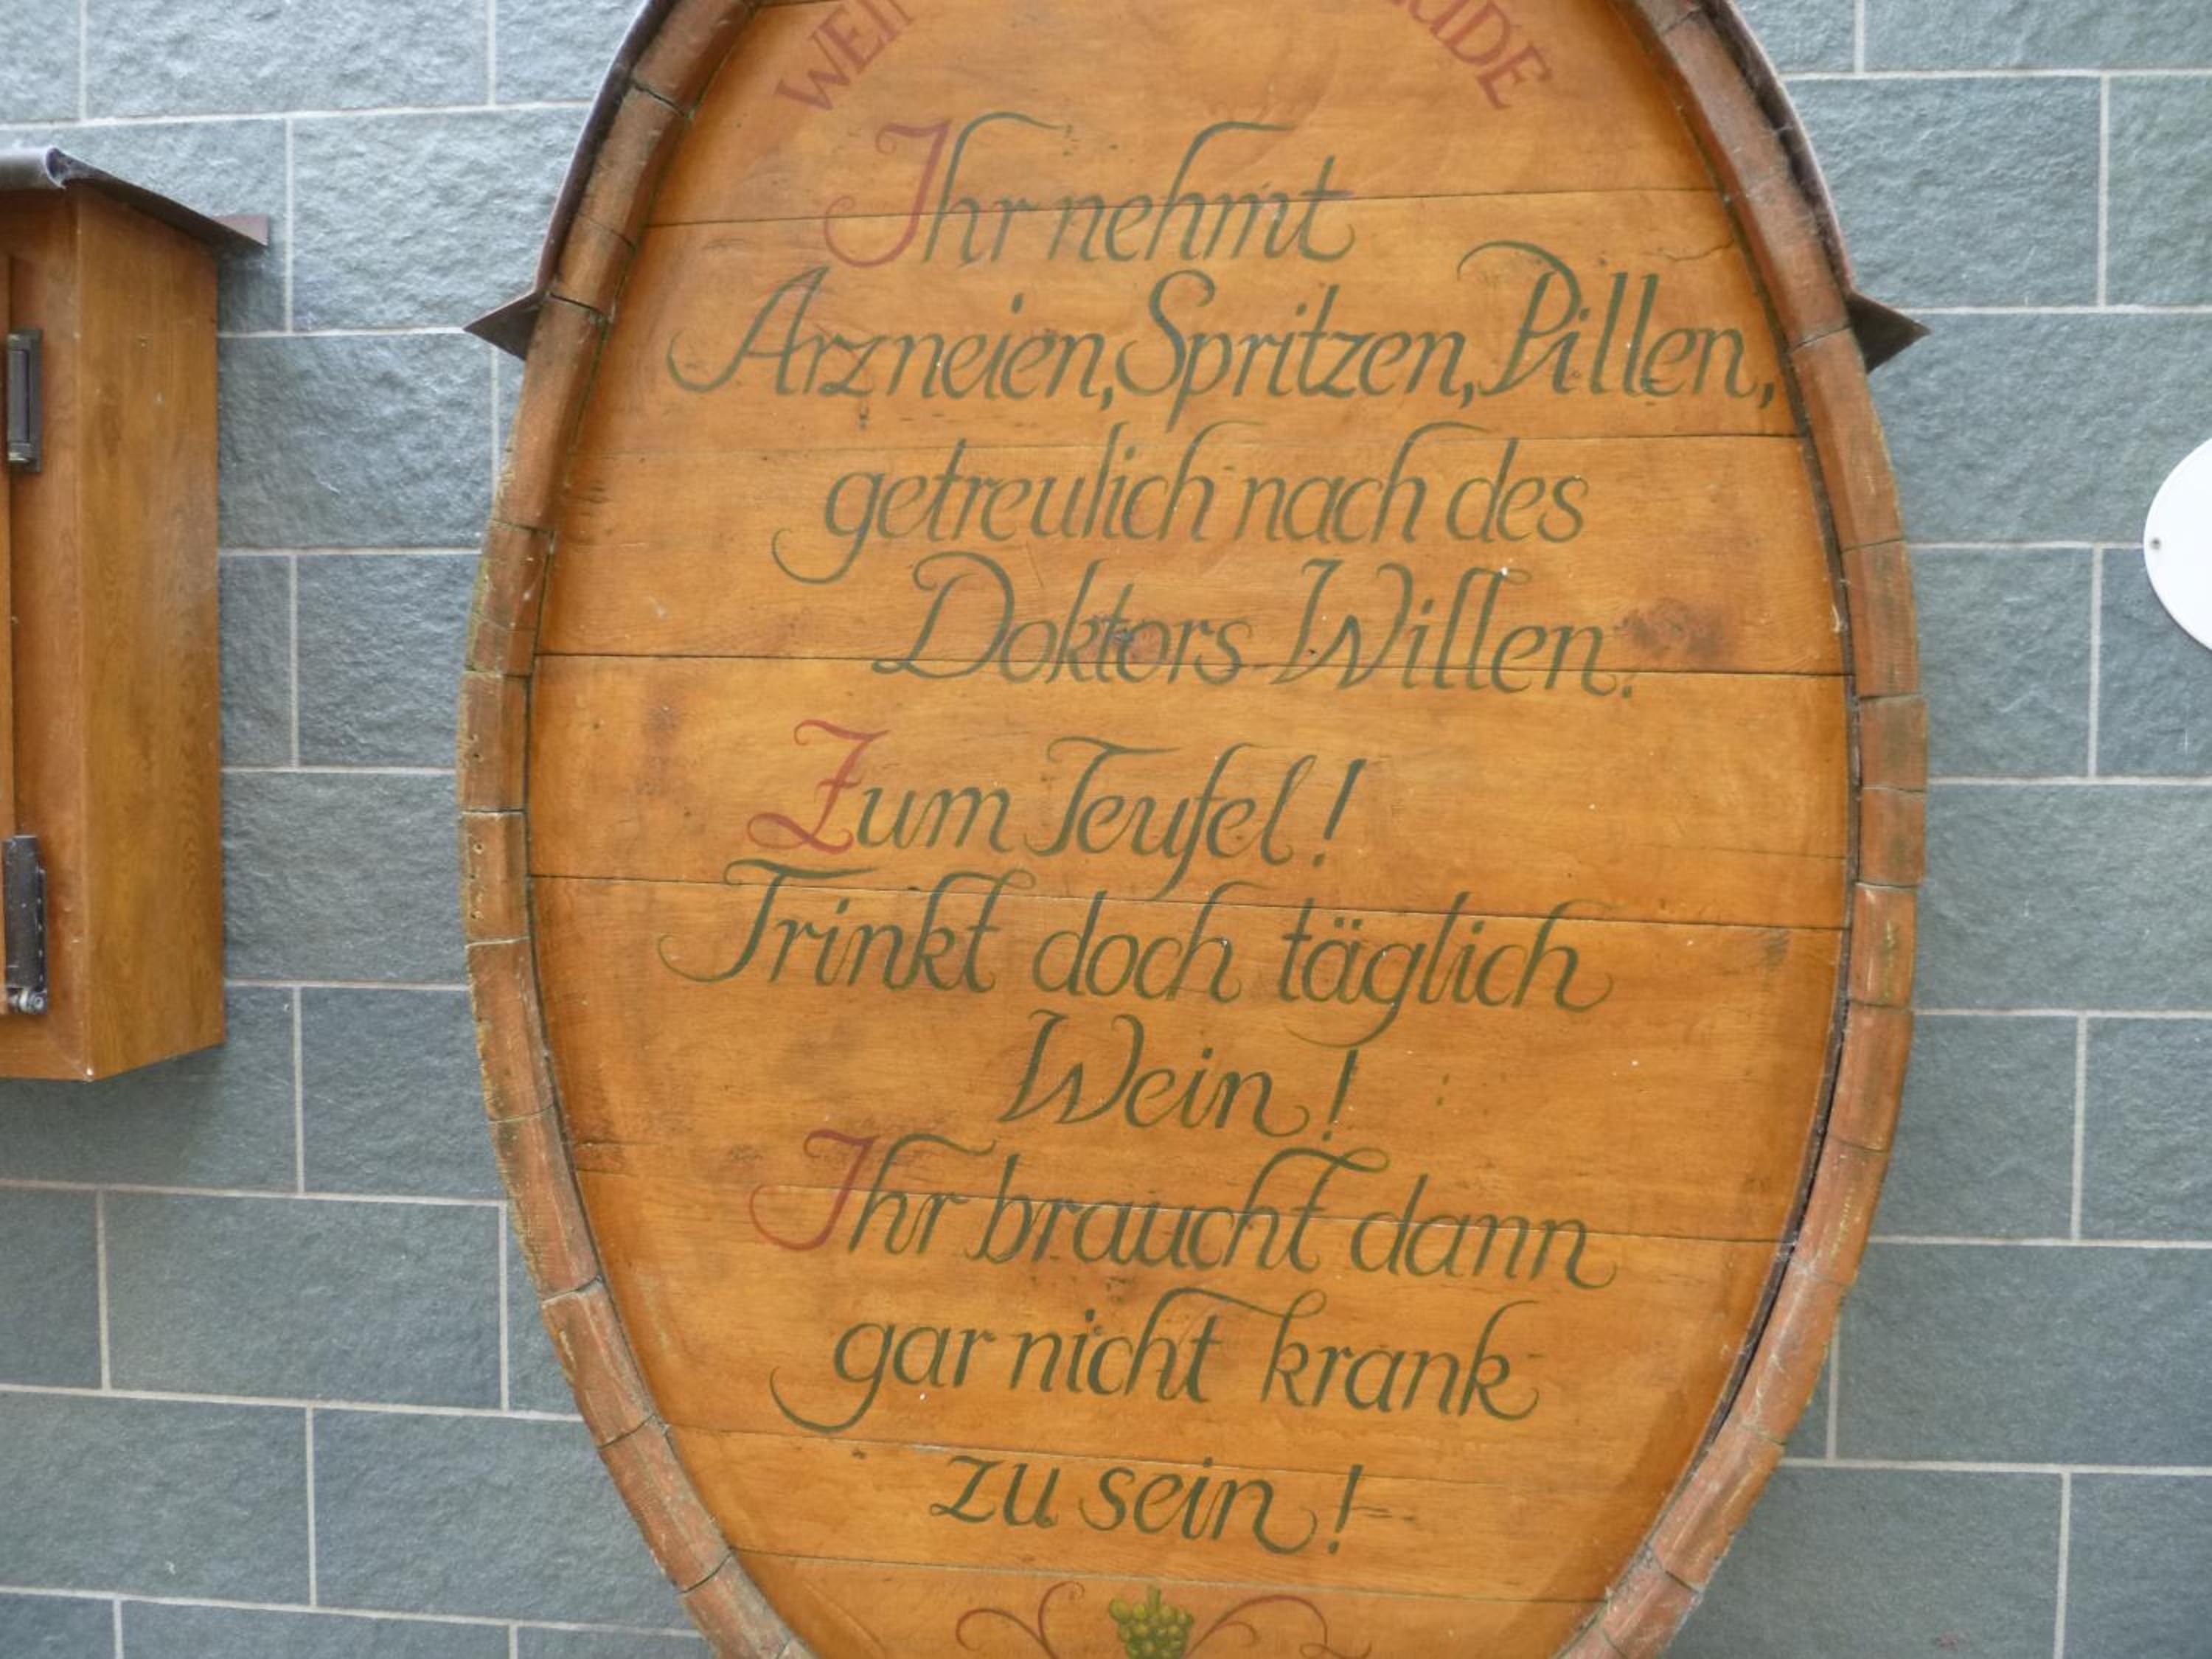 Ihr nehmt
Arzneien, Spritzen, Pillen,
getreulich nach des
Doktors Willen.
Zum Teufel!
Trinkt doch täglich
Wein!
Ihr braucht dann
gar nicht krank
zu sein!